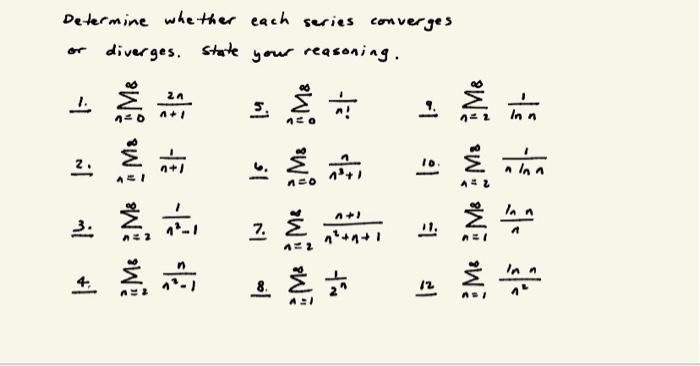 Determine whether each series converges
or diverges. State your reasoning.
1. ∞ Σ n=0 2n/(n+1)
5. ∞ Σ n=0 1/n!
9. ∞ Σ n=2 1/ln n
2. ∞ Σ n=1 1/(n+1)
6. ∞ Σ n=0 n/(n³+1)
10. ∞ Σ n=2 1/(n ln n)
3. ∞ Σ n=2 1/(n²-1)
7. ∞ Σ n=2 (n+1)/(n²+n+1)
11. ∞ Σ n=1 ln n/n
4. ∞ Σ n=2 n/(n²-1)
8. ∞ Σ n=1 1/2ⁿ
12 ∞ Σ n=1 ln n/n²